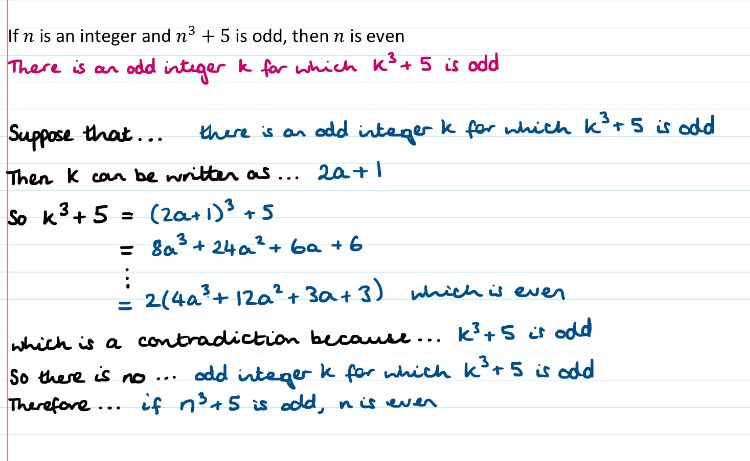 If n is an integer and n³ + 5 is odd, then n is even
There is an odd integer k for which k³ + 5 is odd
Suppose that... there is an odd integer k for which k³ + 5 is odd
Then k can be written as ... 2a + 1
So k³ + 5 = (2a+1)³ + 5
= 8a³ + 24a² + 6a + 6
⋮
= 2(4a³ + 12a² + 3a + 3) which is even
which is a contradiction because... k³ + 5 is odd
So there is no ... odd integer k for which k³ + 5 is odd
Therefore ... if n³ + 5 is odd, n is even